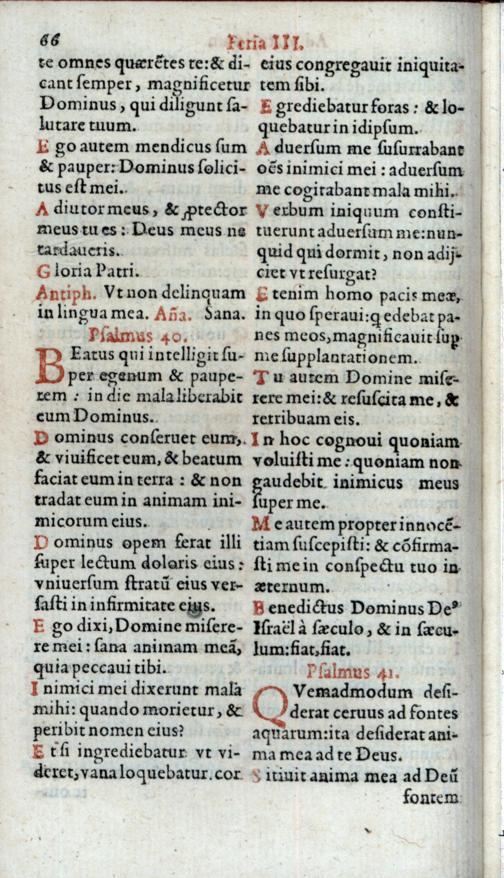 66
Feria III.
te omnes quærẽtes te: & di-
cant ſemper, magnificetur
Dominus, qui diligunt ſa-
lutare tuum.
E go autem mendicus ſum
& pauper: Dominus ſolici-
tus eſt mei.
A diutor meus, & ꝓtector
meus tu es: Deus meus ne
tardaueris.
G loria Patri.
Antiph. Vt non delinquam
in lingua mea. Aña. Sana.
Pſalmus 40.
BEatus qui intelligit ſu-
per egenum & paupe-
rem : in die mala liberabit
eum Dominus.
D ominus conſeruet eum,
& viuificet eum, & beatum
faciat eum in terra : & non
tradat eum in animam ini-
micorum eius.
D ominus opem ferat illi
ſuper lectum doloris eius:
vniuerſum ſtratũ eius ver-
ſaſti in infirmitate eius.
E go dixi, Domine miſere-
re mei: ſana animam meã,
quia peccaui tibi.
I nimici mei dixerunt mala
mihi: quando morietur, &
peribit nomen eius?
E t ſi ingrediebatur vt vi-
deret, vana loquebatur. cor
eius congregauit iniquita-
tem ſibi.
E grediebatur foras : & lo-
quebatur in idipſum.
A duerſum me ſuſurrabant
oẽs inimici mei : aduerſum
me cogitabant mala mihi.
V erbum iniquum conſti-
tuerunt aduerſum me: nun-
quid qui dormit, non adij-
ciet vt reſurgat?
E tenim homo pacis meæ,
in quo ſperaui: q edebat pa-
nes meos, magnificauit ſuꝑ
me ſupplantationem.
T u autem Domine miſe-
rere mei: & reſuſcita me, &
retribuam eis.
I n hoc cognoui quoniam
voluiſti me : quoniam non
gaudebit inimicus meus
ſuper me.
M e autem propter innocẽ-
tiam ſuſcepiſti: & cõfirma-
ſti me in conſpectu tuo in
æternum.
B enedictus Dominus Deꝰ
Iſraël à ſæculo, & in ſæcu-
lum: fiat, fiat.
Pſalmus 41.
QVemadmodum deſi-
derat ceruus ad fontes
aquarum: ita deſiderat ani-
ma mea ad te Deus.
S itiuit anima mea ad Deũ
fontem